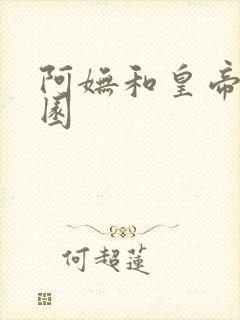 阿嫵和皇帝
園
何超蓮